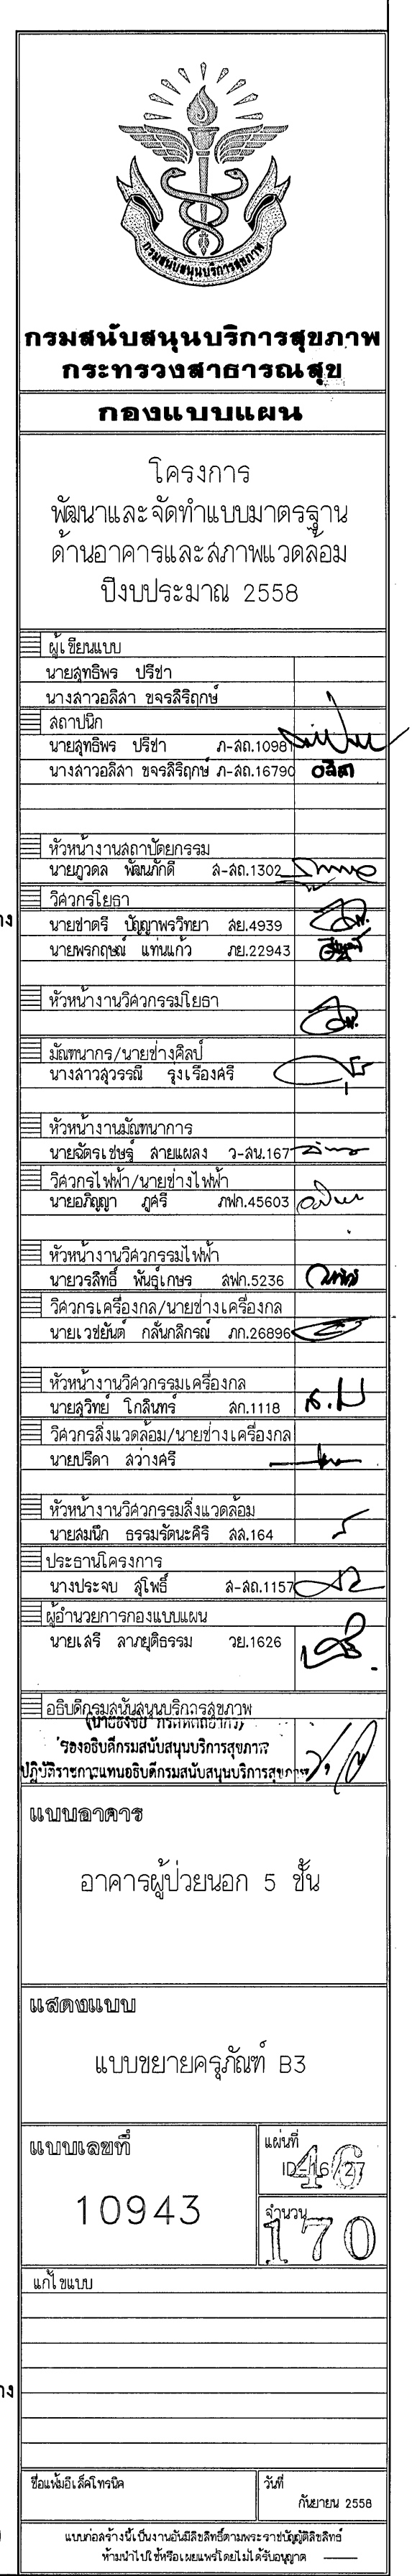 กรมสนับสนุนบริการสุขภาพ
กรมสนับสนุนบริการสุขภาพ
กระทรวงสาธารณสุข
กองแบบแผน
โครงการ
พัฒนาและจัดทำแบบมาตรฐาน
ด้านอาคารและสภาพแวดล้อม
ปีงบประมาณ 2558
ผู้เขียนแบบ
นายสุทธิพร ปรีชา
นางสาวอลิสา ขจรสิริฤกษ์
สถาปนิก
นายสุทธิพร ปรีชา ภ-สถ.10981
นางสาวอลิสา ขจรสิริฤกษ์ ภ-สถ.16790 อลิสา
หัวหน้างานสถาปัตยกรรม
นายภูวดล พัฒนภักดี ส-สถ.1302
วิศวกรโยธา
นายชาตรี ปัญญาพรวิทยา สย.4939
นายพรกฤษณ์ แท่นแก้ว ภย.22943
หัวหน้างานวิศวกรรมโยธา
มัณฑนากร/นายช่างศิลป์
นางสาวสุวรรณี รุ่งเรืองศรี
หัวหน้างานมัณฑนาการ
นายฉัตรเชษฐ์ สายแผลง ว-สน.167
วิศวกรไฟฟ้า/นายช่างไฟฟ้า
นายอภิญญา ภูศรี ภฟก.45603
หัวหน้างานวิศวกรรมไฟฟ้า
นายวรสิทธิ์ พันธุ์เกษร สฟก.5236
วิศวกรเครื่องกล/นายช่างเครื่องกล
นายเวชยันต์ กลั่นกลิกรณ์ ภก.26896
หัวหน้างานวิศวกรรมเครื่องกล
นายสุวิทย์ โกสินทร์ สก.1118
วิศวกรสิ่งแวดล้อม/นายช่างเครื่องกล
นายปรีดา สว่างศรี
หัวหน้างานวิศวกรรมสิ่งแวดล้อม
นายสมนึก ธรรมรัตนะคิรี สส.164
ประธานโครงการ
นางประจบ สุโพธิ์ ส-สถ.1157
ผู้อำนวยการกองแบบแผน
นายเสรี ลาภยุติธรรม วย.1626
อธิบดีกรมสนับสนุนบริการสุขภาพ
รองอธิบดีกรมสนับสนุนบริการสุขภาพ
ปฏิบัติราชการแทนอธิบดีกรมสนับสนุนบริการสุขภาพ
แบบอาคาร
อาคารผู้ป่วยนอก 5 ชั้น
แสดงแบบ
แบบขยายครุภัณฑ์ B3
แบบเลขที่
10943
แผ่นที่
ID-16/27
46
จำนวน
170
แก้ไขแบบ
ชื่อแฟ้มอีเล็คโทรนิค
วันที่
กันยายน 2558
แบบก่อสร้างนี้เป็นงานอันมีลิขสิทธิ์ตามพระราชบัญญัติลิขสิทธิ์
ห้ามนำไปใช้หรือเผยแพร่โดยไม่ได้รับอนุญาต